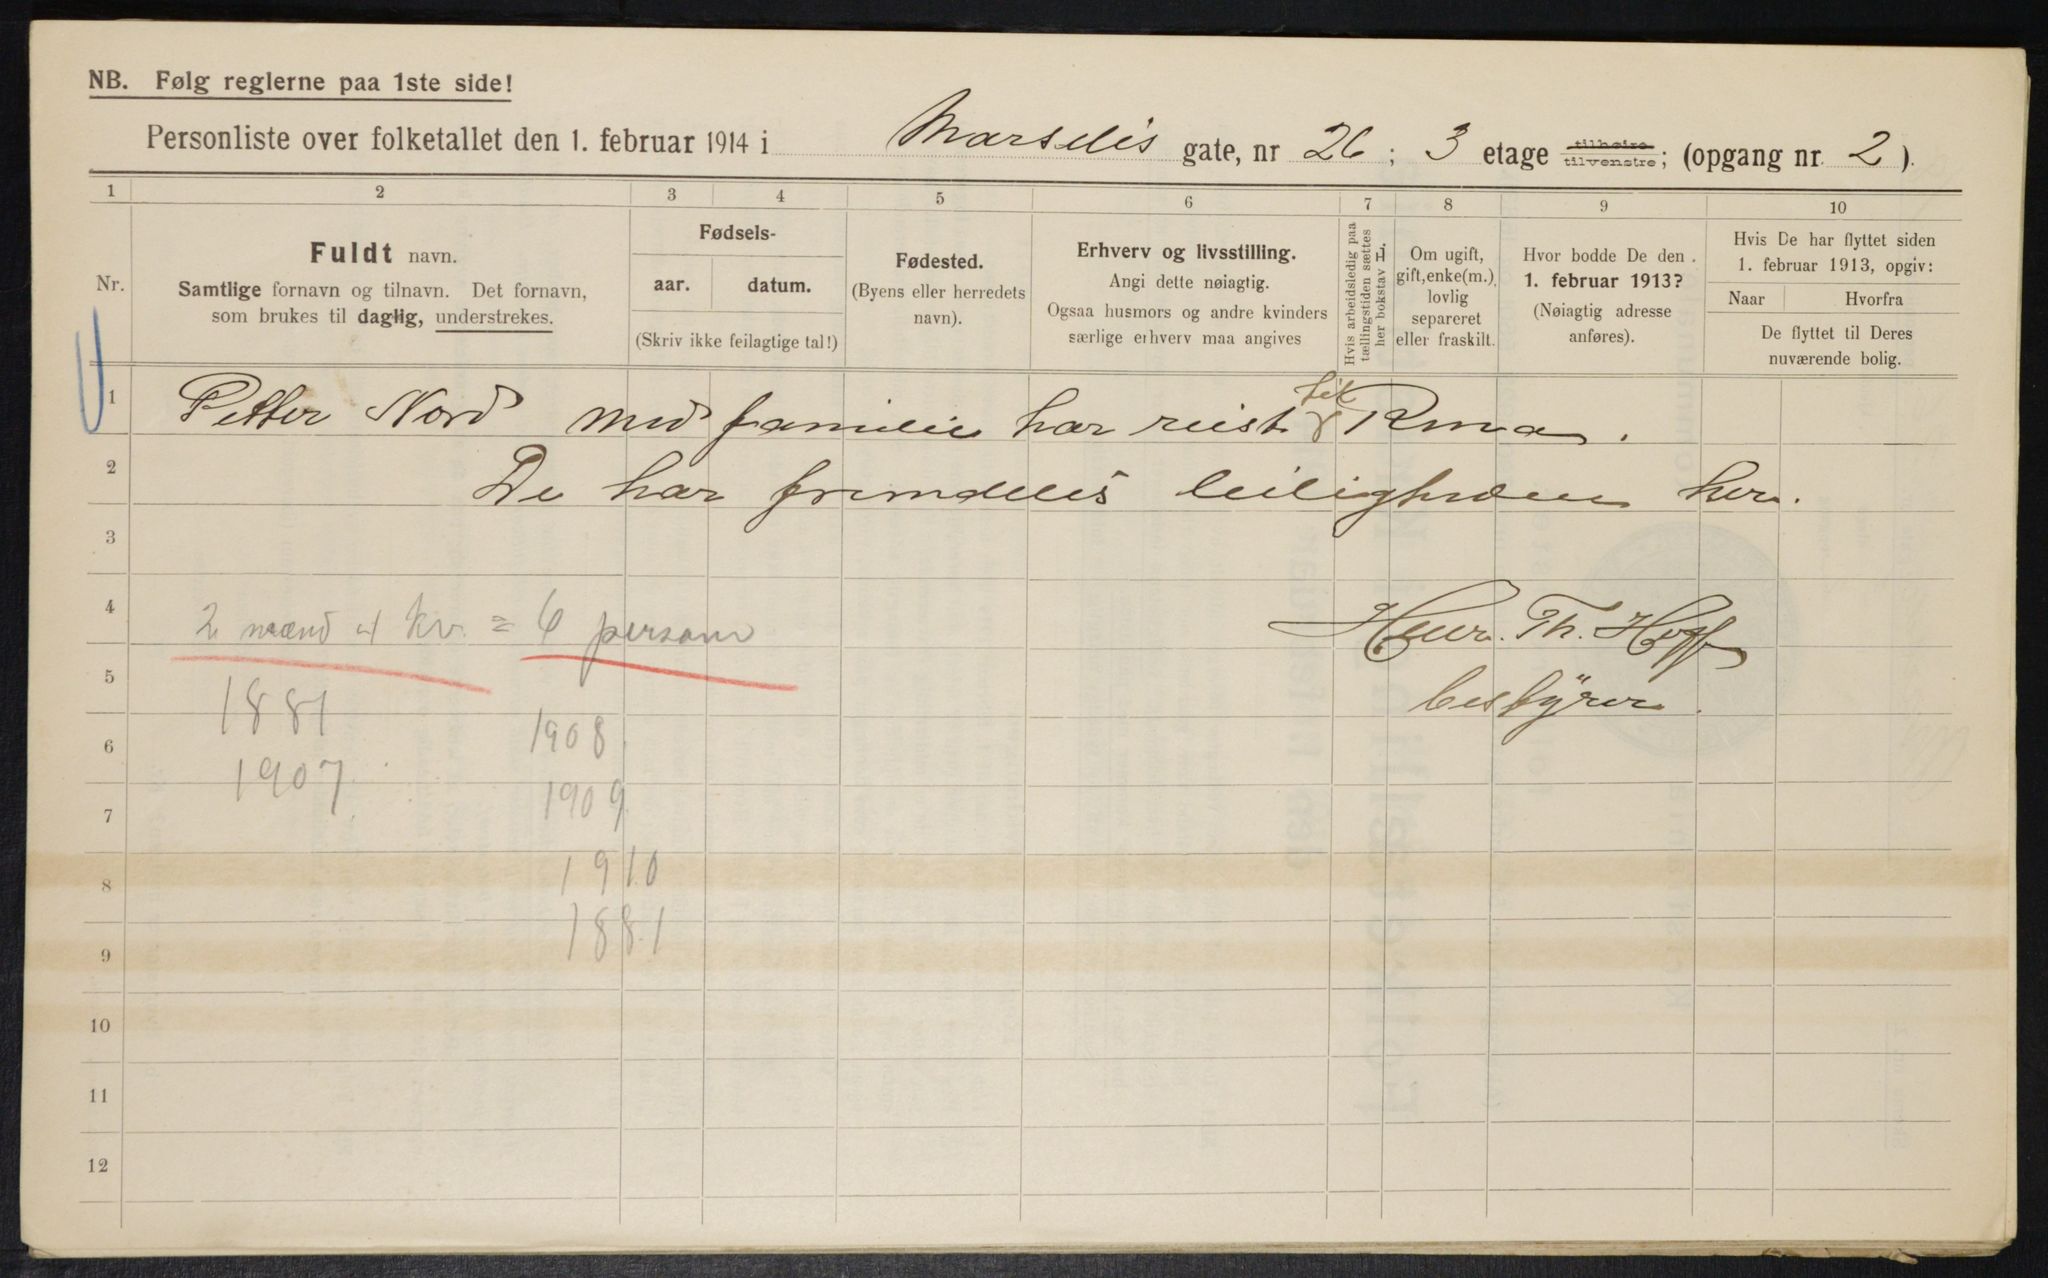 NB. Følg reglerne paa 1ste side!
Personliste over folketallet den 1. februar 1914 i Marselis gate, nr 26; 3 etage tilhøire tilvenstre; (opgang nr. 2).
1 2 3 4 5 6 7 8 9 10
Nr.
Fuldt navn.
Samtlige fornavn og tilnavn. Det fornavn,
som brukes til daglig, understrekes.
Fødsels-
aar. datum.
(Skriv ikke feilagtige tal!)
Fødested.
(Byens eller herredets
navn).
Erhverv og livsstilling.
Angi dette nøiagtig.
Ogsaa husmors og andre kvinders
særlige erhverv maa angives
Hvis arbeidsledig paa
tællingstiden sættes
her bokstav L.
Om ugift,
gift, enke(m.),
lovlig
separeret
eller fraskilt.
Hvor bodde De den
1. februar 1913?
(Nøiagtig adresse
anføres).
Hvis De har flyttet siden
1. februar 1913, opgiv:
Naar Hvorfra
De flyttet til Deres
nuværende bolig.
1 Petter Nord med familie har reist til
2 De har fremdeles leiligheden her.
3
4 2 mænd 4 kv. = 6 person
Henr. Th. Hoff
5 1881
bestyrer
6 1908
1907
7 1909
8 1910
9 1881
10
11
12